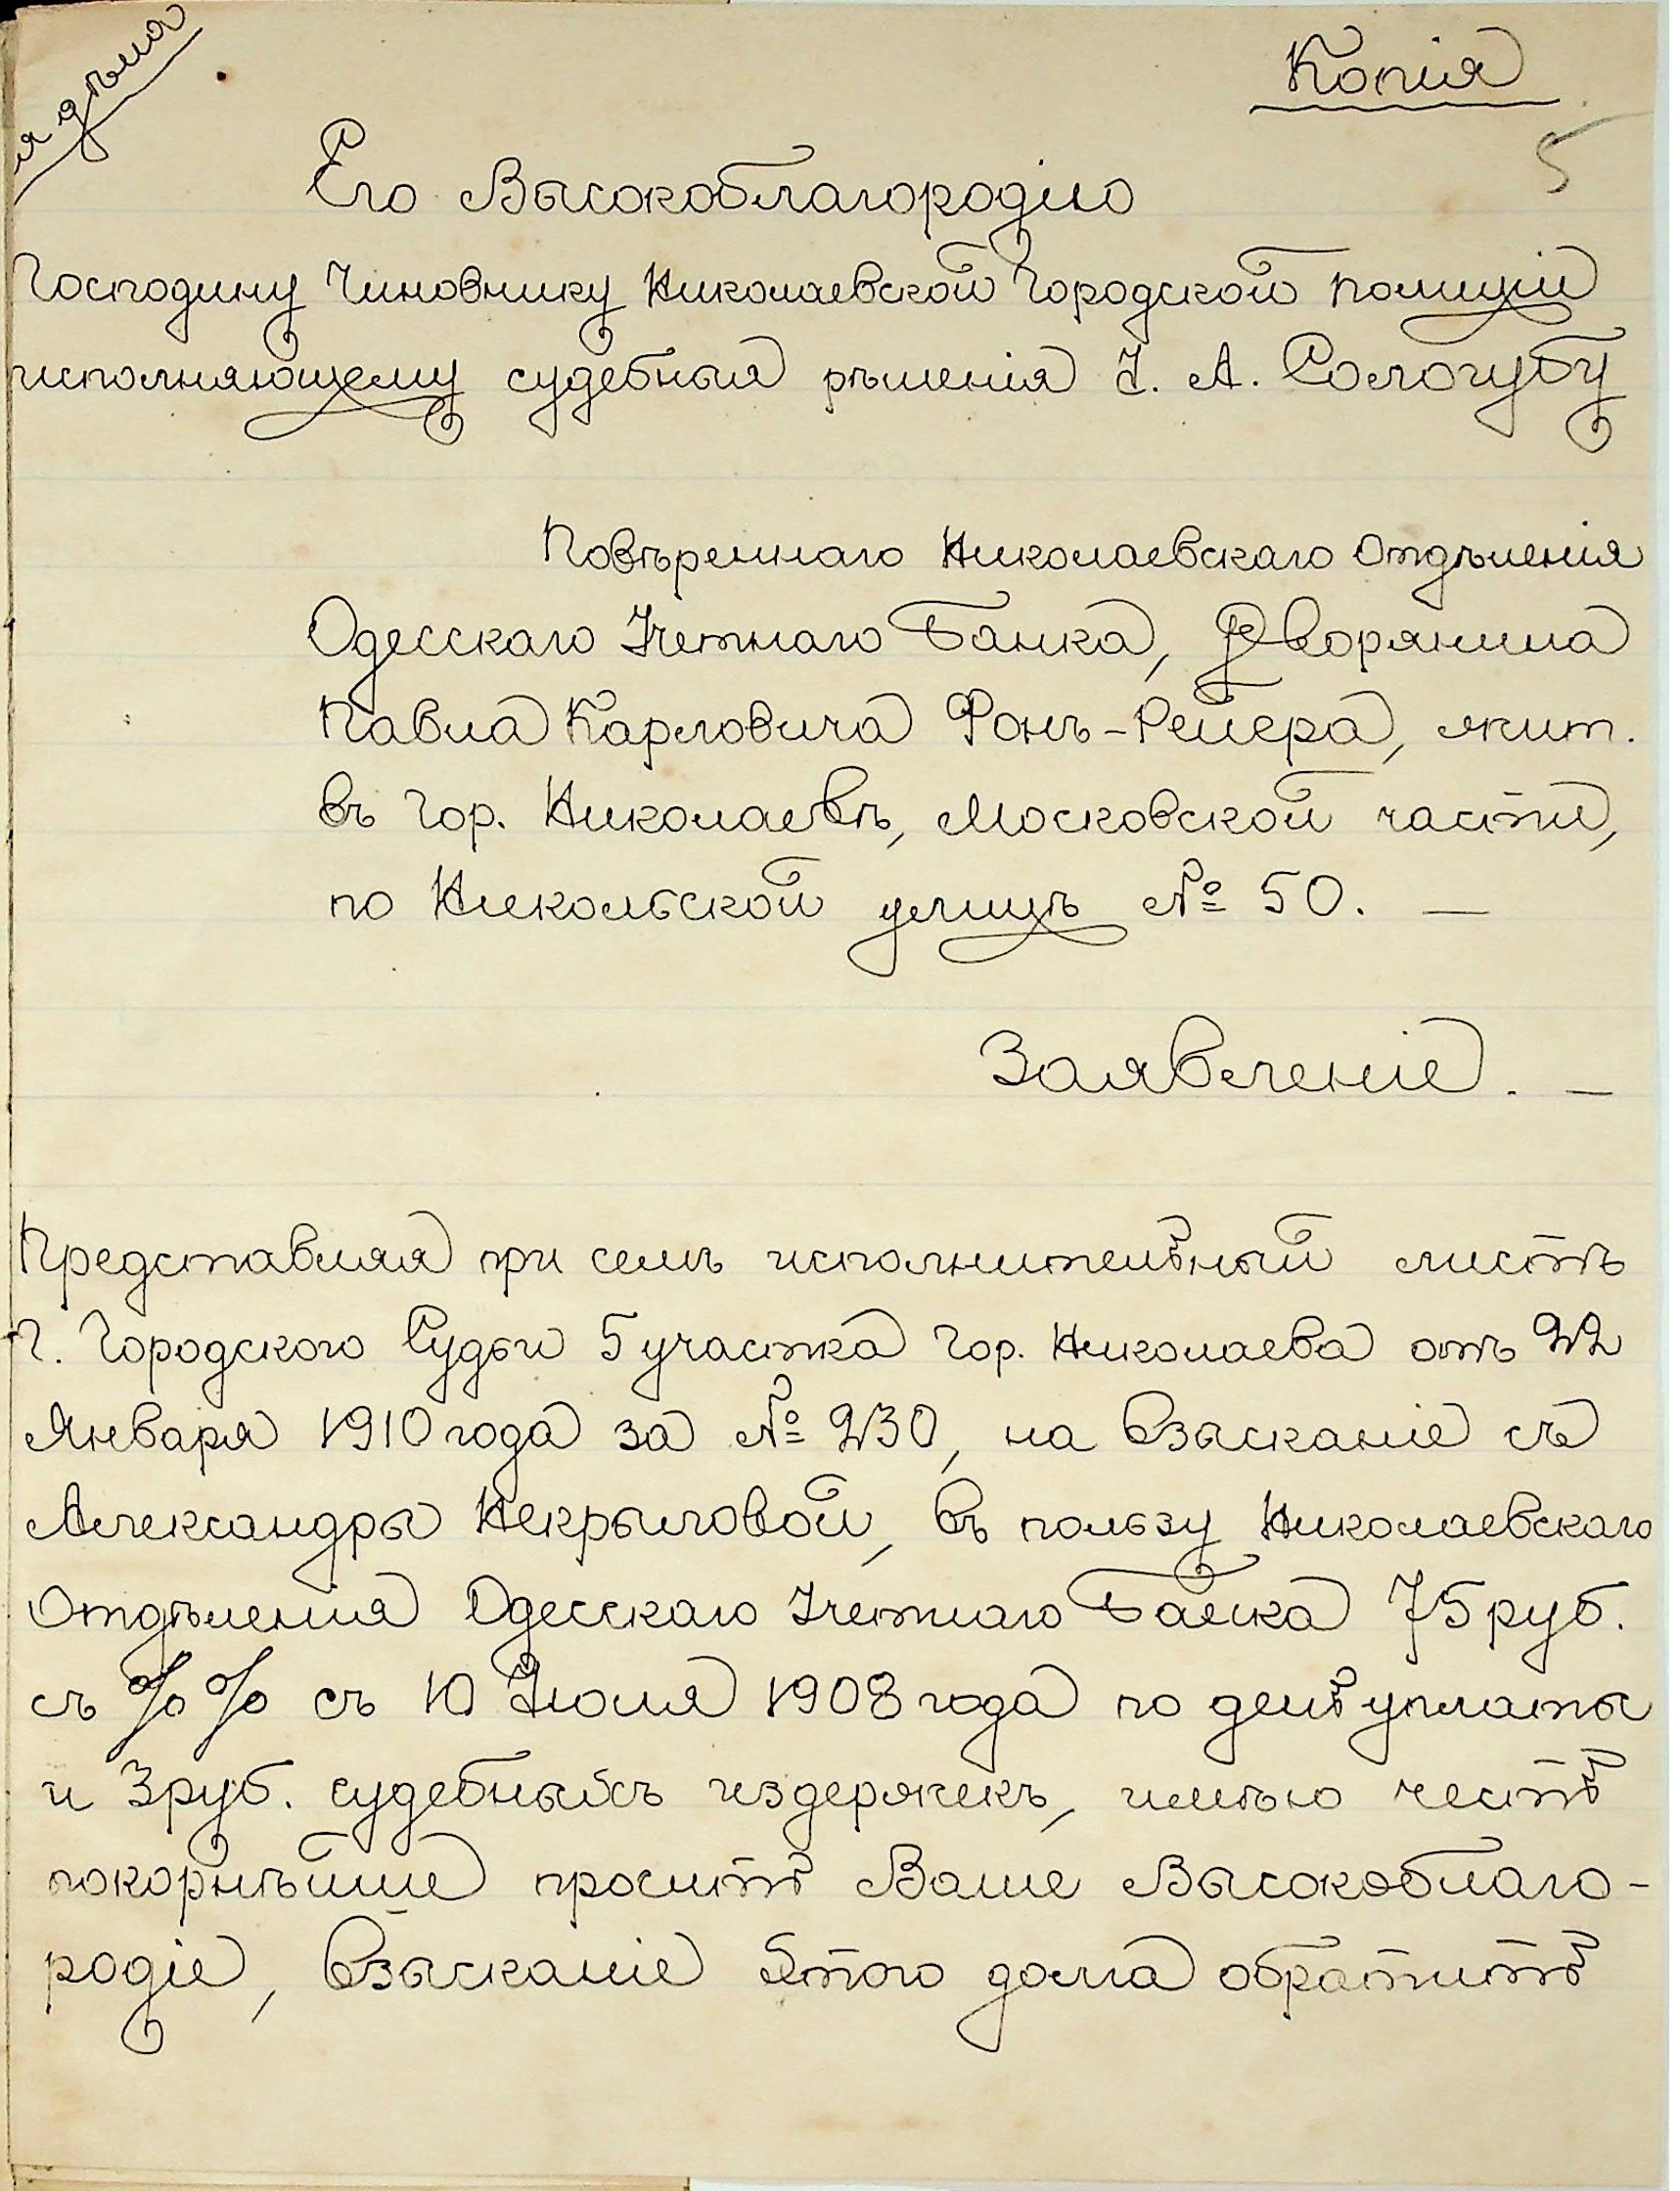 я дѣла
Копія
5
Его Высокоблагородію
Господину Чиновнику Николаевской Городской полиціи
исполняющему судебныя рѣшенія І. А. Сологубу
Повѣреннаго Николаевскаго Отдѣленія
Одесскаго Учетнаго Банка, Дворянина
Павла Карловича Фонъ-Рейера, жит.
въ гор. Николаевѣ, Московской части,
по Никольской улицѣ № 50. —
Заявленіе. —
Представляя при семъ исполнительный листъ
Г. Городского Судьи 5 участка гор. Николаева отъ 22
Января 1910 года за № 230, на взысканіе съ
Александры Некрыловой, въ пользу Николаевскаго
Отдѣленія Одесскаго Учетнаго Банка 75 руб.
съ %% съ 10 Іюля 1908 года по день уплаты
и 3 руб. судебныхъ издержекъ, имѣю честь
покорнѣйше просить Ваше Высокоблаго-
родіе, взысканіе этого долга обратить